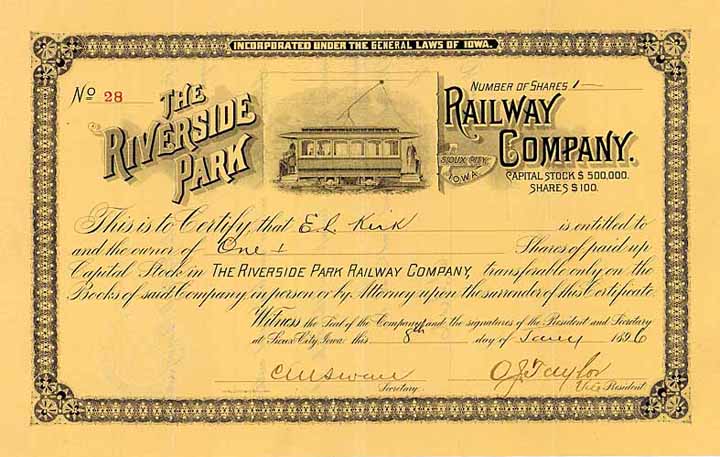 INCORPORATED UNDER THE GENERAL LAWS OF IOWA.
No 28
NUMBER OF SHARES 1
THE RIVERSIDE PARK
RAILWAY COMPANY.
SIOUX CITY, IOWA.
CAPITAL STOCK $ 500,000.
SHARES $ 100.
This is to Certify, that E L Kirk is entitled to
and the owner of One 1 Shares of paid up
Capital Stock in THE RIVERSIDE PARK RAILWAY COMPANY, transferable only on the
Books of said Company, in person or by Attorney upon the surrender of this Certificate.
Witness the Seal of the Company and the signatures of the President and Secretary
at Sioux City, Iowa this 8th day of Jany 1896
O J Taylor
Secretary.
Vice President